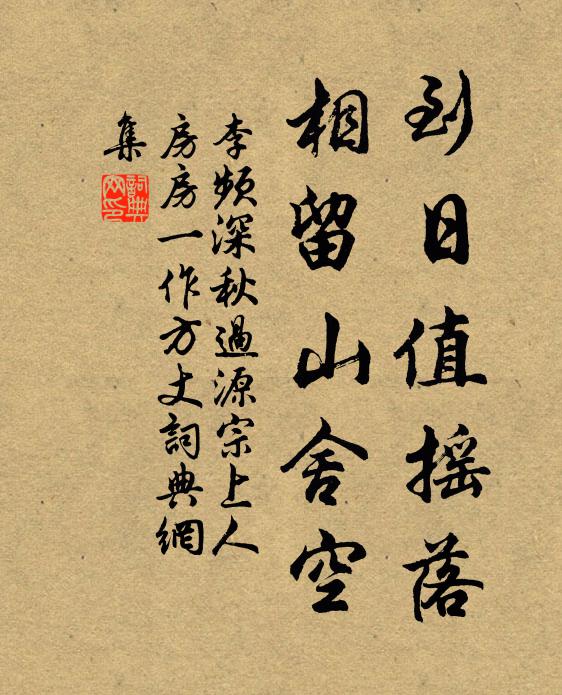 到日值摇落
相留山舍空
李频深秋過源宗上人
房房一作方丈詞典網
集
詞典
网印